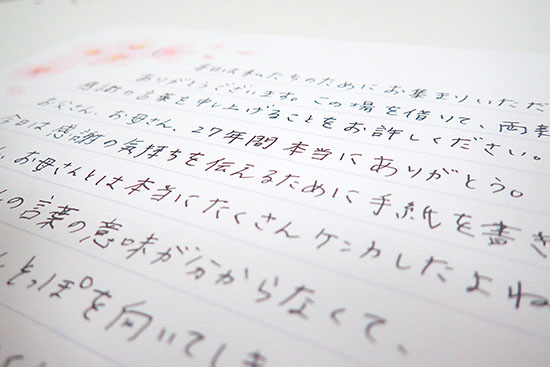 本日は私たちのためにお集まりいただ
ありがとうございます。この場を借りて、両
感謝の言葉を申し上げることをお許しください。
お父さん、お母さん、27年間本当にありがとう。
今日は感謝の気持ちを伝えるために手紙を書き
お母さんとは本当にたくさんケンカしたよね
の言葉の意味が分からなくて、
っぽを向いてしま